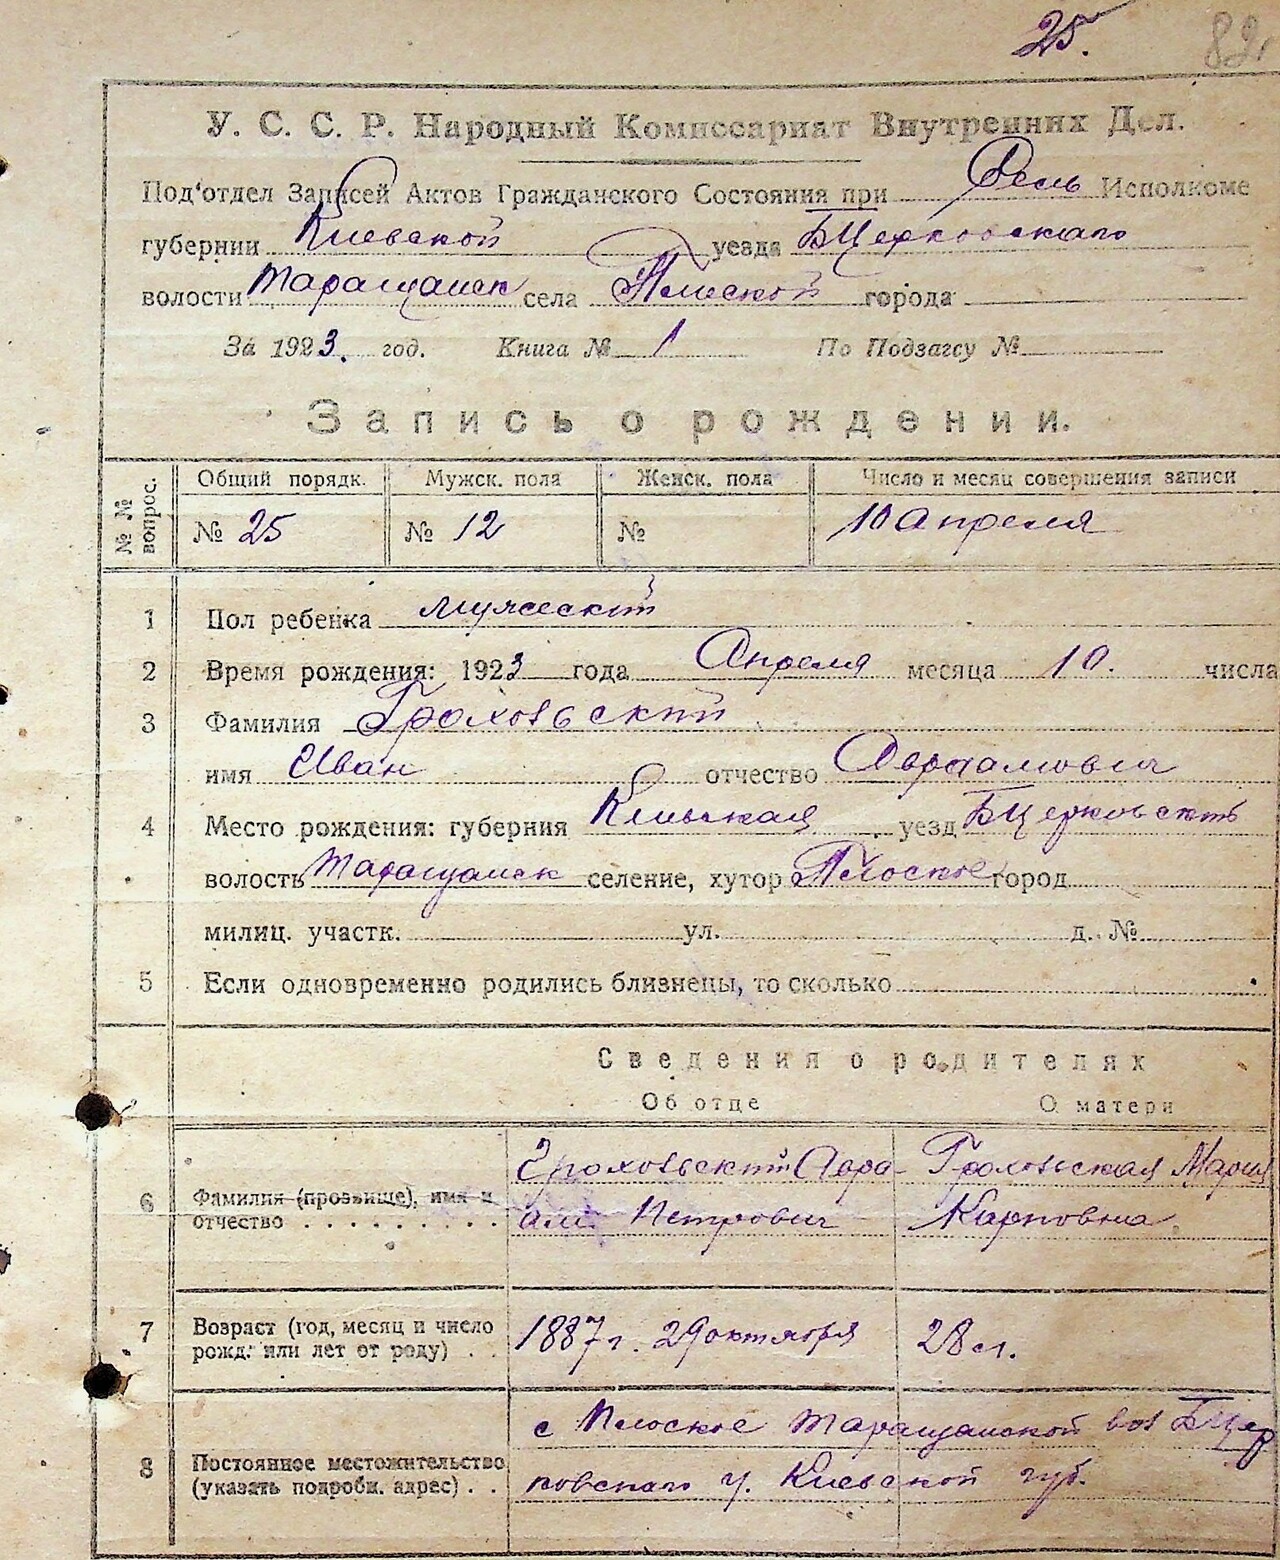 25.
82
У. С. С. Р. Народный Комиссариат Внутренних Дел.
Под'отдел Записей Актов Гражданского Состояния при Сель Исполкоме
губернии Киевской уезда БЦерковскаго
волости Таращанск села Плоской города
За 1923. год. Книга № 1 По Подзагсу №
Запись о рождении.
№ № вопрос. Общий порядк. Мужск. пола Женск. пола Число и месяц совершения записи
№ 25 № 12 № 10 Апреля
1 Пол ребенка мужеский
2 Время рождения: 1923 года Апреля месяца 10. числа
3 Фамилия Гроховский
имя Иван отчество Авраамович
4 Место рождения: губерния Киевская уезд БЦерковский
волость Таращанск селение, хутор Плоское город
милиц. участк. ул. д. №
5 Если одновременно родились близнецы, то сколько
Сведения о родителях
Об отце О матери
Гроховский Авра- Гроховская Мария
6 Фамилия (прозвище), имя и
отчество . . . . . . . . . ам. Петрович Карповна
7 Возраст (год, месяц и число
рожд. или лет от роду) . . 1887 г. 29 октября 28 л.
с Плоское Таращанской вол БЦер
8 Постоянное местожительство
(указать подробн. адрес) . . ковскаго у. Киевской губ.